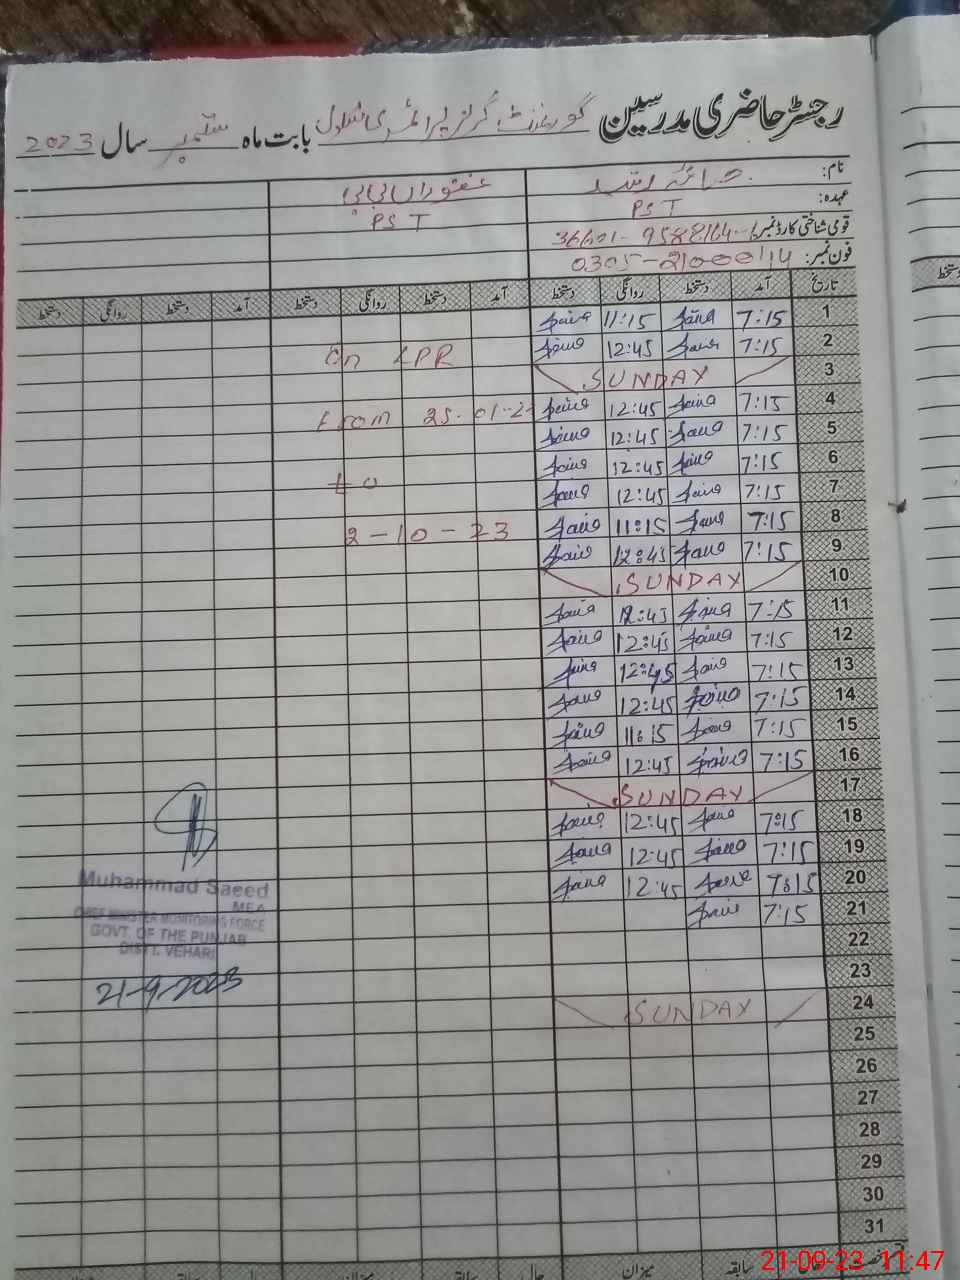 رجسٹر حاضری مدرسین گورنمنٹ گرلز پرائمری سکول بابت ماہ ستمبر سال 2023
نام: صائمہ
عہدہ: PST PST
قومی شناختی کارڈ نمبر:
فون نمبر:
تاریخ آمد دستخط روانگی دستخط آمد دستخط روانگی دستخط آمد دستخط روانگی دستخط
1 7:15 Saima 11:15 Saima
2 7:15 Saima 12:45 Saima On LPR
3 SUNDAY
4 7:15 Saima 12:45 Saima From 25-01-23
5 7:15 Saima 12:45 Saima
6 7:15 Saima 12:45 Saima to
7 7:15 Saima 12:45 Saima
8 7:15 Saima 11:15 Saima 2-10-23
9 7:15 Saima 12:45 Saima
10 SUNDAY
11 7:15 Saima 12:45 Saima
12 7:15 Saima 12:45 Saima
13 7:15 Saima 12:45 Saima
14 7:15 Saima 12:45 Saima
15 7:15 Saima 11:15 Saima
16 7:15 Saima 12:45 Saima
17 SUNDAY
18 7:15 Saima 12:45 Saima
19 7:15 Saima 12:45 Saima
20 7:15 Saima 12:45 Saima
21 7:15 Saima
22
23
24 SUNDAY
25
26
27
28
29
30
31
Muhammad Saeed
MEA
CHIEF MINISTER MONITORING FORCE
GOVT. OF THE PUNJAB
DISTT. VEHARI
21-9-2023
سابقہ میزان حال سابقہ میزان
21-09-23 11:47